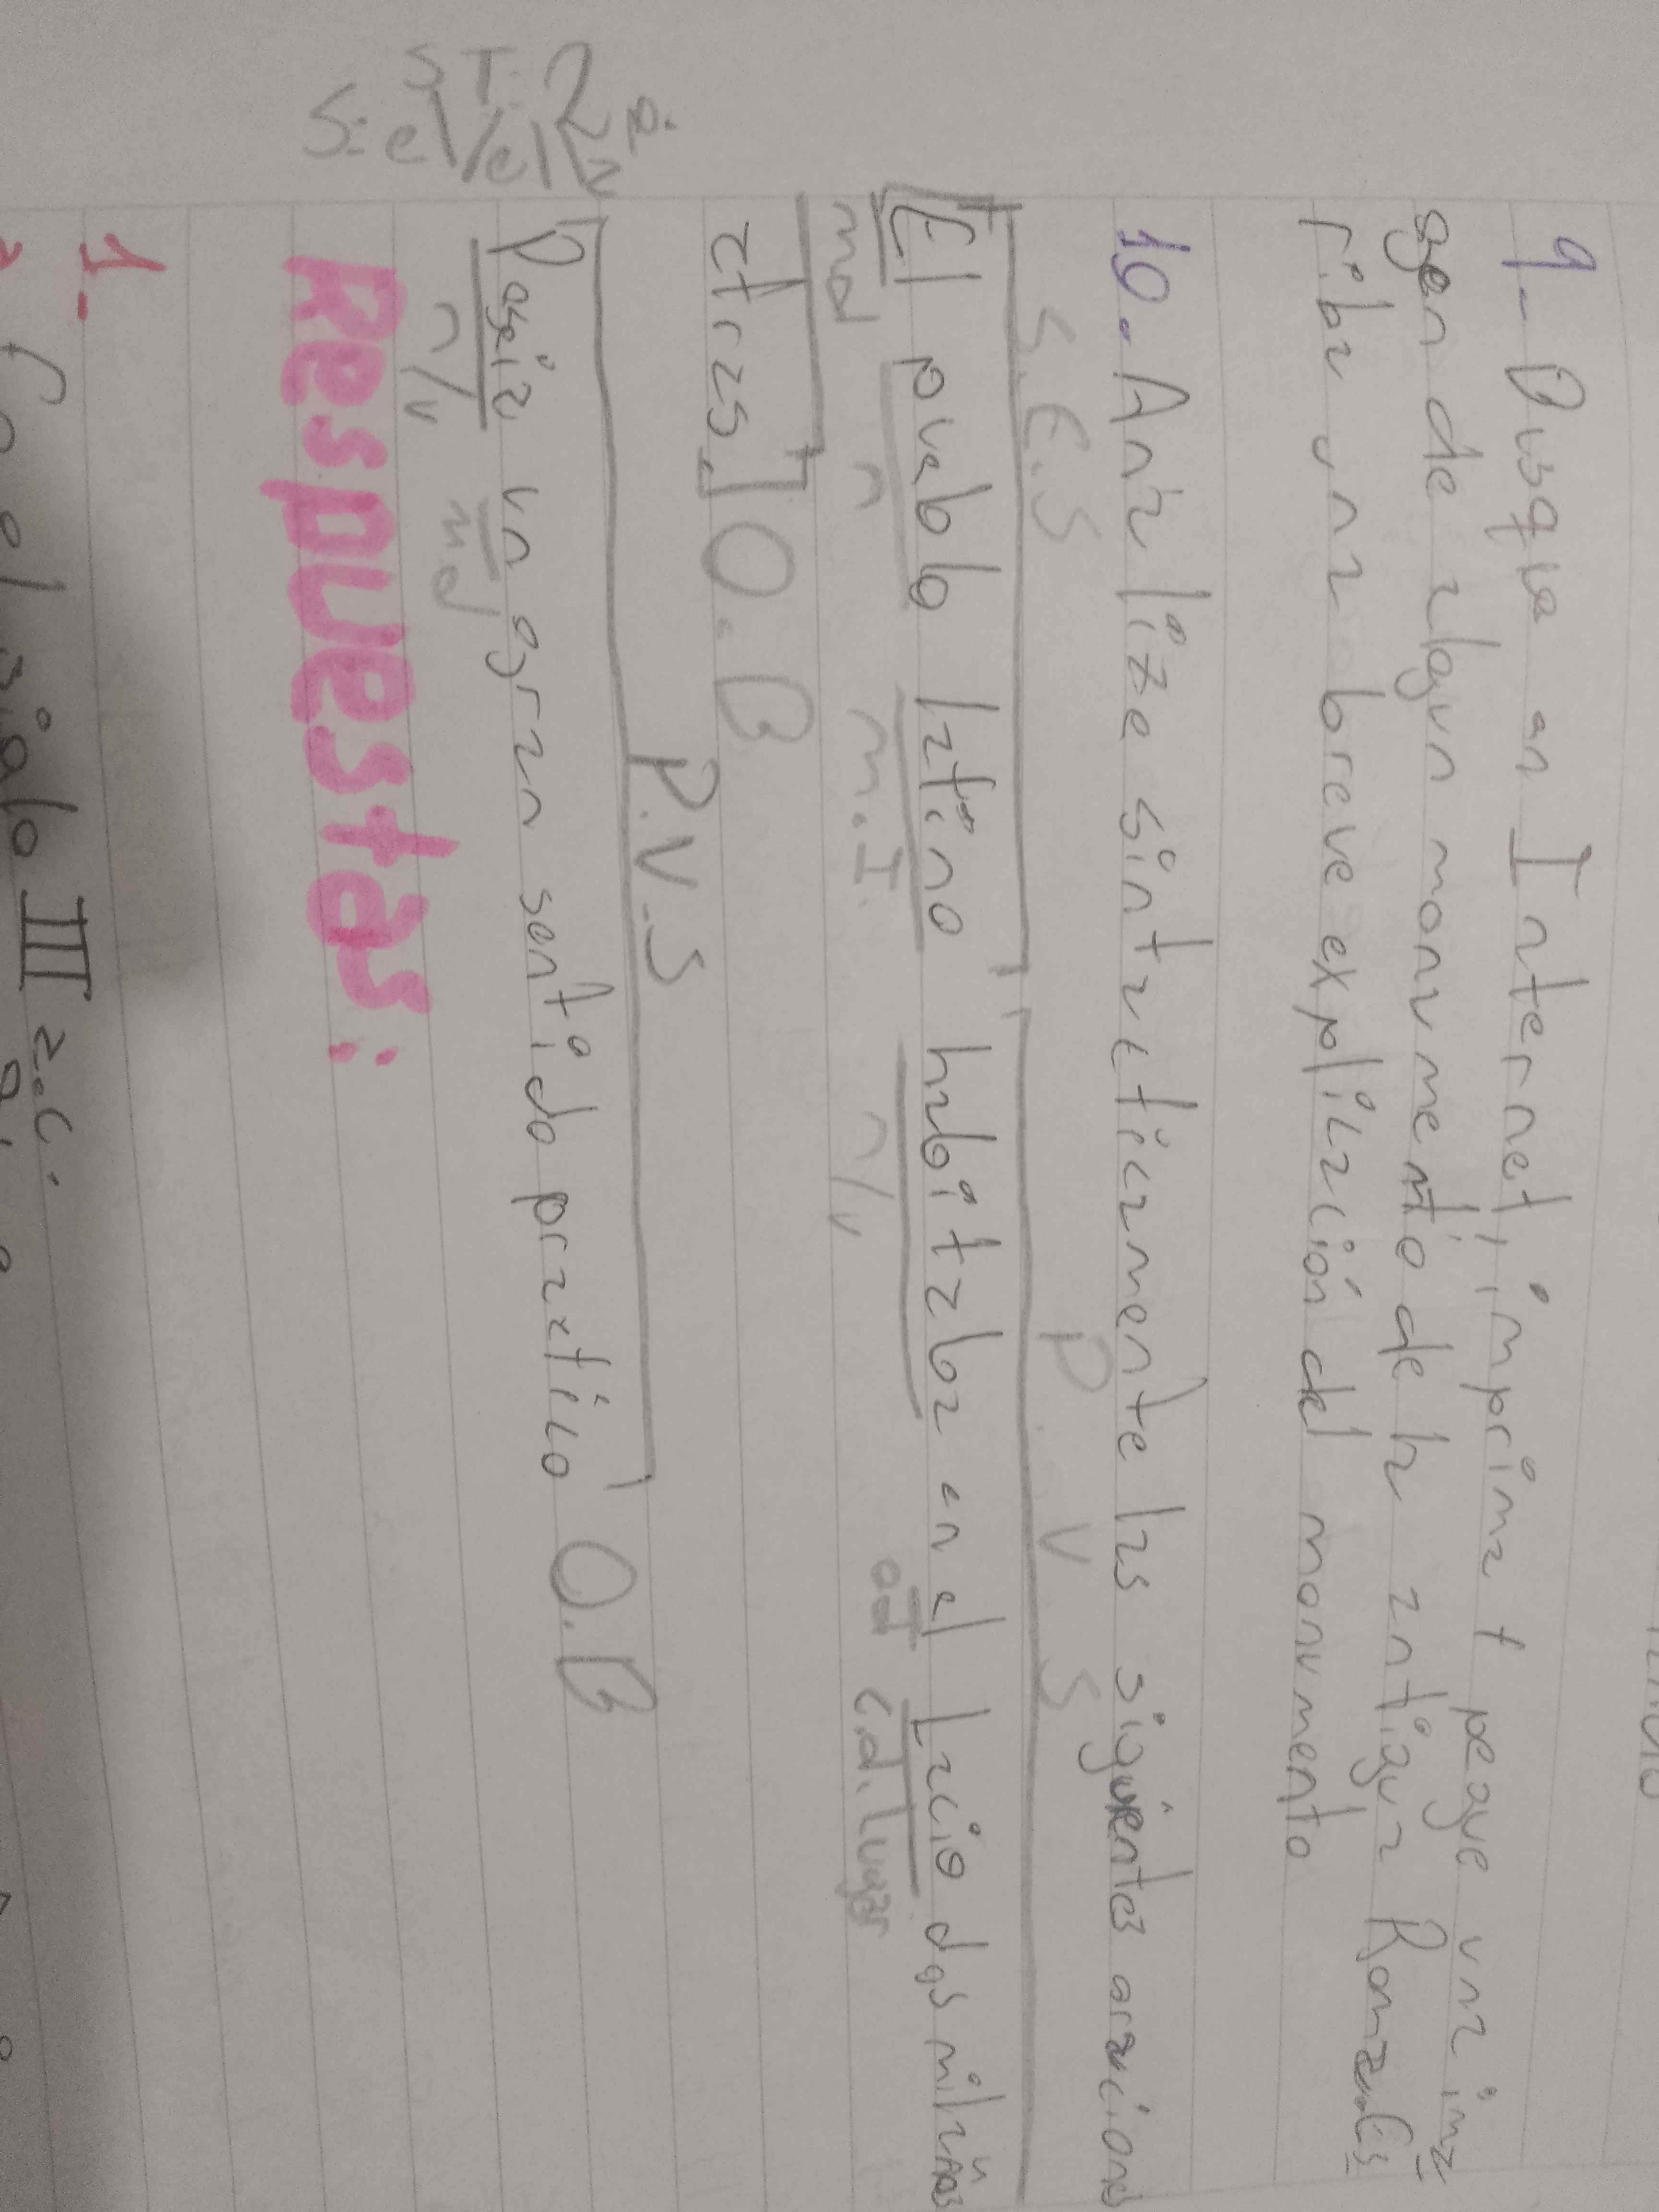 9- Busque en Internet, imprima y pegue una ima
gen de algun monumento de la antigua Roma. Es
riba una breve explicación del monumento
10. Analize sintacticamente las siguientes oracions
S.E.S P V S
[El pueblo latino habitaba en el Lacio dos mil años
md n m.I. n/v od c.d. lugar
atras.] O.B
P.V.S
Poseia un gran sentido practico O.B
n/v md
S.T: 3ª p.
S: el/ella
Respuestas:
1-
siglo III a.C.